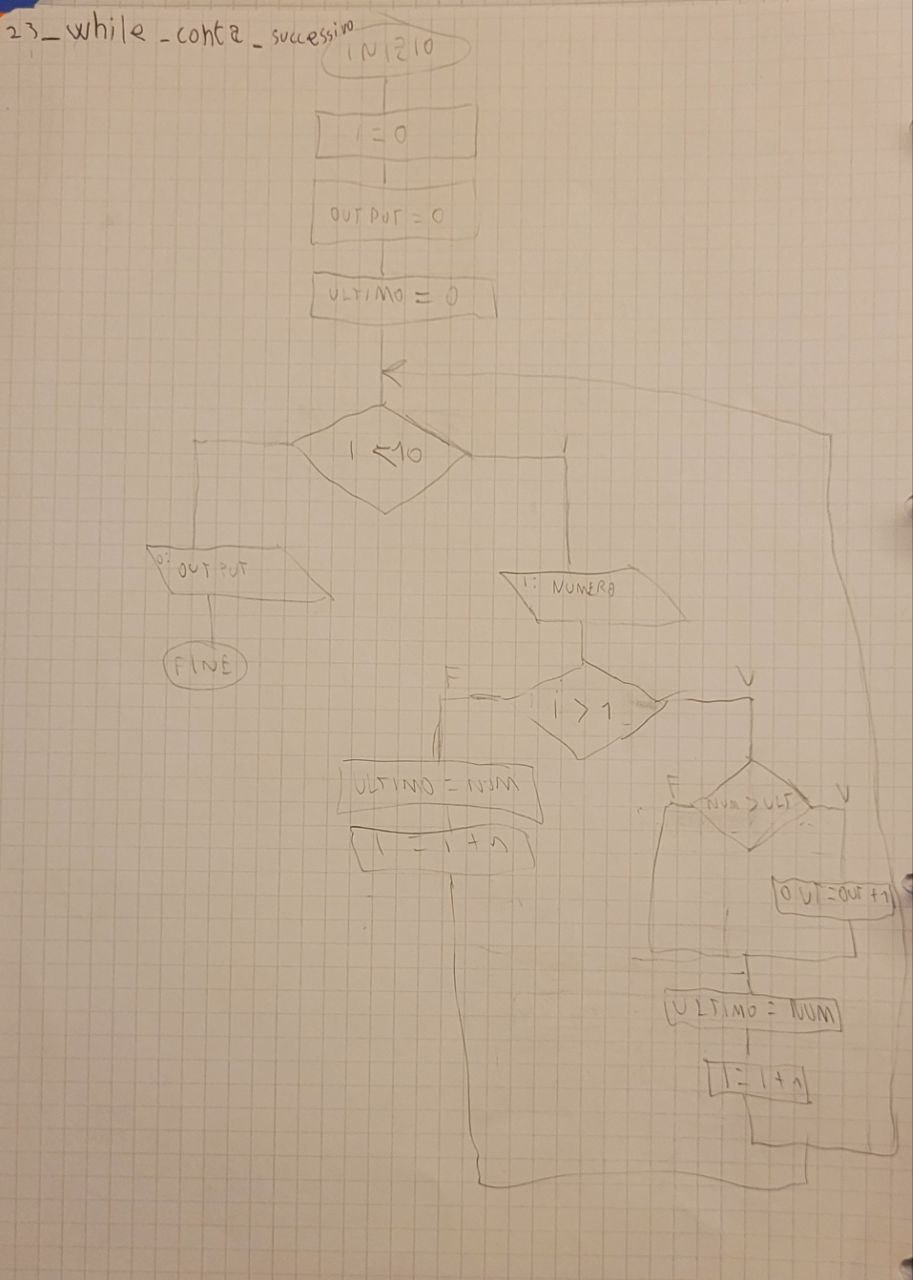 23_while_conta_successivo
INIZIO
I = 0
OUTPUT = 0
ULTIMO = 0
I <10
O: OUTPUT
I: NUMERO
FINE
F
V
i > 1
ULTIMO = NUM
F
NUM > ULT
V
I = I + 1
OUT=OUT+1
ULTIMO = NUM
I = I + 1